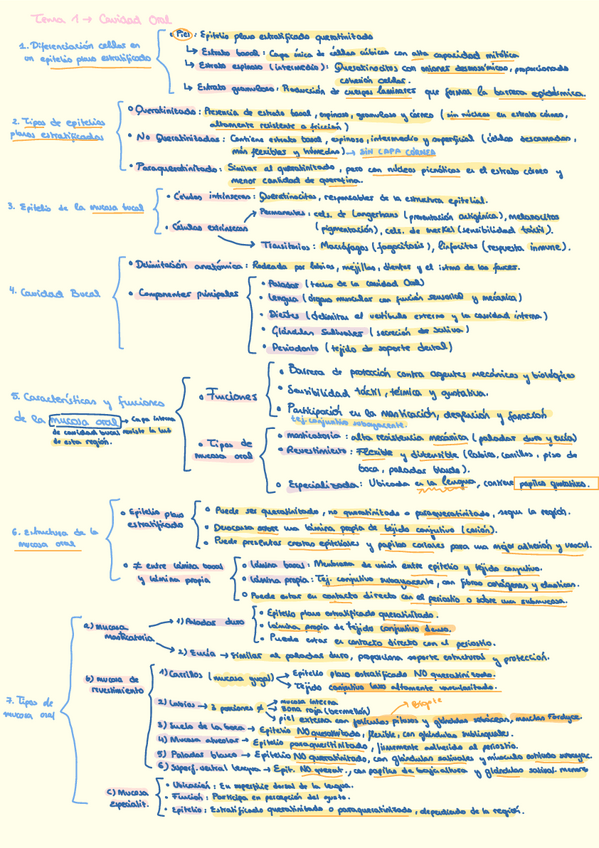 Tema 1 → Cavidad Oral
1. Diferenciación celular en
un epitelio plano estratificado
Piel: Epitelio plano estratificado queratinizado
↳ Estrato basal: Capa única de células cúbicas con alta capacidad mitótica
↳ Estrato espinoso (intermedio): Queratinocitos con uniones desmosómicas, proporcionando
cohesión celular.
↳ Estrato granuloso: Producción de cuerpos laminares que forman la barrera epidérmica.
2. Tipos de epitelios
planos estratificados
• Queratinizado: Presencia de estrato basal, espinoso, granuloso y córneo (sin núcleos en estrato córneo,
altamente resistente a fricción)
• No Queratinizados: Contiene estrato basal, espinoso, intermedio y superficial (células descamadas,
más flexibles y húmedas) → SIN CAPA CÓRNEA
• Paraqueratinizado: Similar al queratinizado, pero con núcleos picnóticos en el estrato córneo y
menor cantidad de queratina.
3. Epitelio de la mucosa bucal
• Células intrínsecas: Queratinocitos, responsables de la estructura epitelial.
• Células extrínsecas
Permanentes: cels. de Langerhans (presentación antigénica), melanocitos
(pigmentación), cels. de merkel (sensibilidad táctil).
Transitorias: Macrófagos (fagocitosis), linfocitos (respuesta inmune).
4. Cavidad Bucal
• Delimitación anatómica: Rodeada por labios, mejillas, dientes y el istmo de las fauces.
• Componentes principales
• Paladar (techo de la cavidad Oral)
• Lengua (órgano muscular con función sensorial y mecánica)
• Dientes (delimitan el vestíbulo externo y la cavidad interna)
• Glándulas Salivales (secreción de saliva)
• Periodonto (tejido de soporte dental)
5. Características y funciones
de la mucosa oral → Capa interna
de cavidad bucal
de esta región.
• Funciones
• Barrera de protección contra agentes mecánicos y biológicos
• Sensibilidad táctil, térmica y gustativa.
• Participación en la masticación, deglución y fonación
tej. conjuntivo subyacente.
• Tipos de
mucosa oral
• masticatoria: alta resistencia mecánica (paladar duro y encía)
• Revestimiento: Flexible y distensible (labios, carrillos, piso de
boca, paladar blando).
• Especializada: Ubicada en la lengua, contiene papilas gustativas.
6. Estructura de la
mucosa oral
• Epitelio plano
estratificado
• Puede ser queratinizado, no queratinizado o paraqueratinizado, según la región.
• Descansa sobre una lámina propia de tejido conjuntivo (corion).
• Puede presentar crestas epiteliales y papilas coriales para una mejor adhesión y vascul.
• ≠ entre lámina basal
y lámina propia
• Lámina basal: Membrana de unión entre epitelio y tejido conjuntivo.
• Lámina propia: Tej. conjuntivo subyacente, con fibras colágenas y elásticas.
• Puede estar en contacto directo con el periostio o sobre una submucosa.
7. Tipos de
mucosa oral
a) mucosa
masticatoria
1) Paladar duro
• Epitelio plano estratificado queratinizado.
• Lámina propia de tejido conjuntivo denso.
• Puede estar en contacto directo con el periostio.
2) Encía → Similar al paladar duro, proporciona soporte estructural y protección.
b) mucosa de
revestimiento
1) Carrillos (mucosa yugal)
Epitelio plano estratificado NO queratinizado.
Tejido conjuntivo laxo altamente vascularizado.
2) Labios → 3 porciones ≠
mucosa interna
zona roja (bermellón)
piel externa con folículos pilosos y glándulas sebáceas,
3) Suelo de la boca → Epitelio NO queratinizado, flexible, con glándulas sublinguales.
4) Mucosa alveolar → Epitelio paraqueratinizado, firmemente adherido al periostio.
5) Paladar blando → Epitelio NO queratinizado, con glándulas salivales y músculo estriado
6) Superf. ventral lengua → Epit. NO querat., con papilas de baja altura y glándulas
c) Mucosa
especializ.
• Ubicación: En superficie dorsal de la lengua.
• Función: Participa en percepción del gusto.
• Epitelio: Estratificado queratinizado o paraqueratinizado, dependiendo de la región.